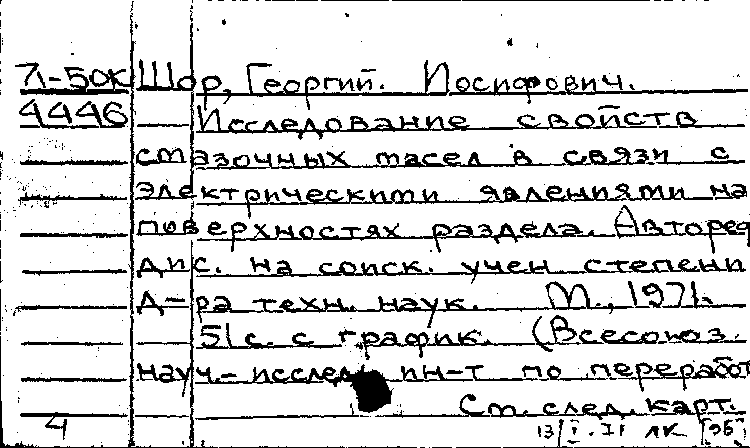 71-50к Шор, Георгий. Иосифович.
4446 Исследование свойств
смазочных масел в связи с
электрическими явлениями на
поверхностях раздела. Автореф
дис. на соиск. учен степени
д-ра техн. наук. М., 1971.
51 с. с график. (Всесоюз.
науч.-исслед. ин-т по переработ
См. след. карт.
4 13/I.71 ЛК [эб]